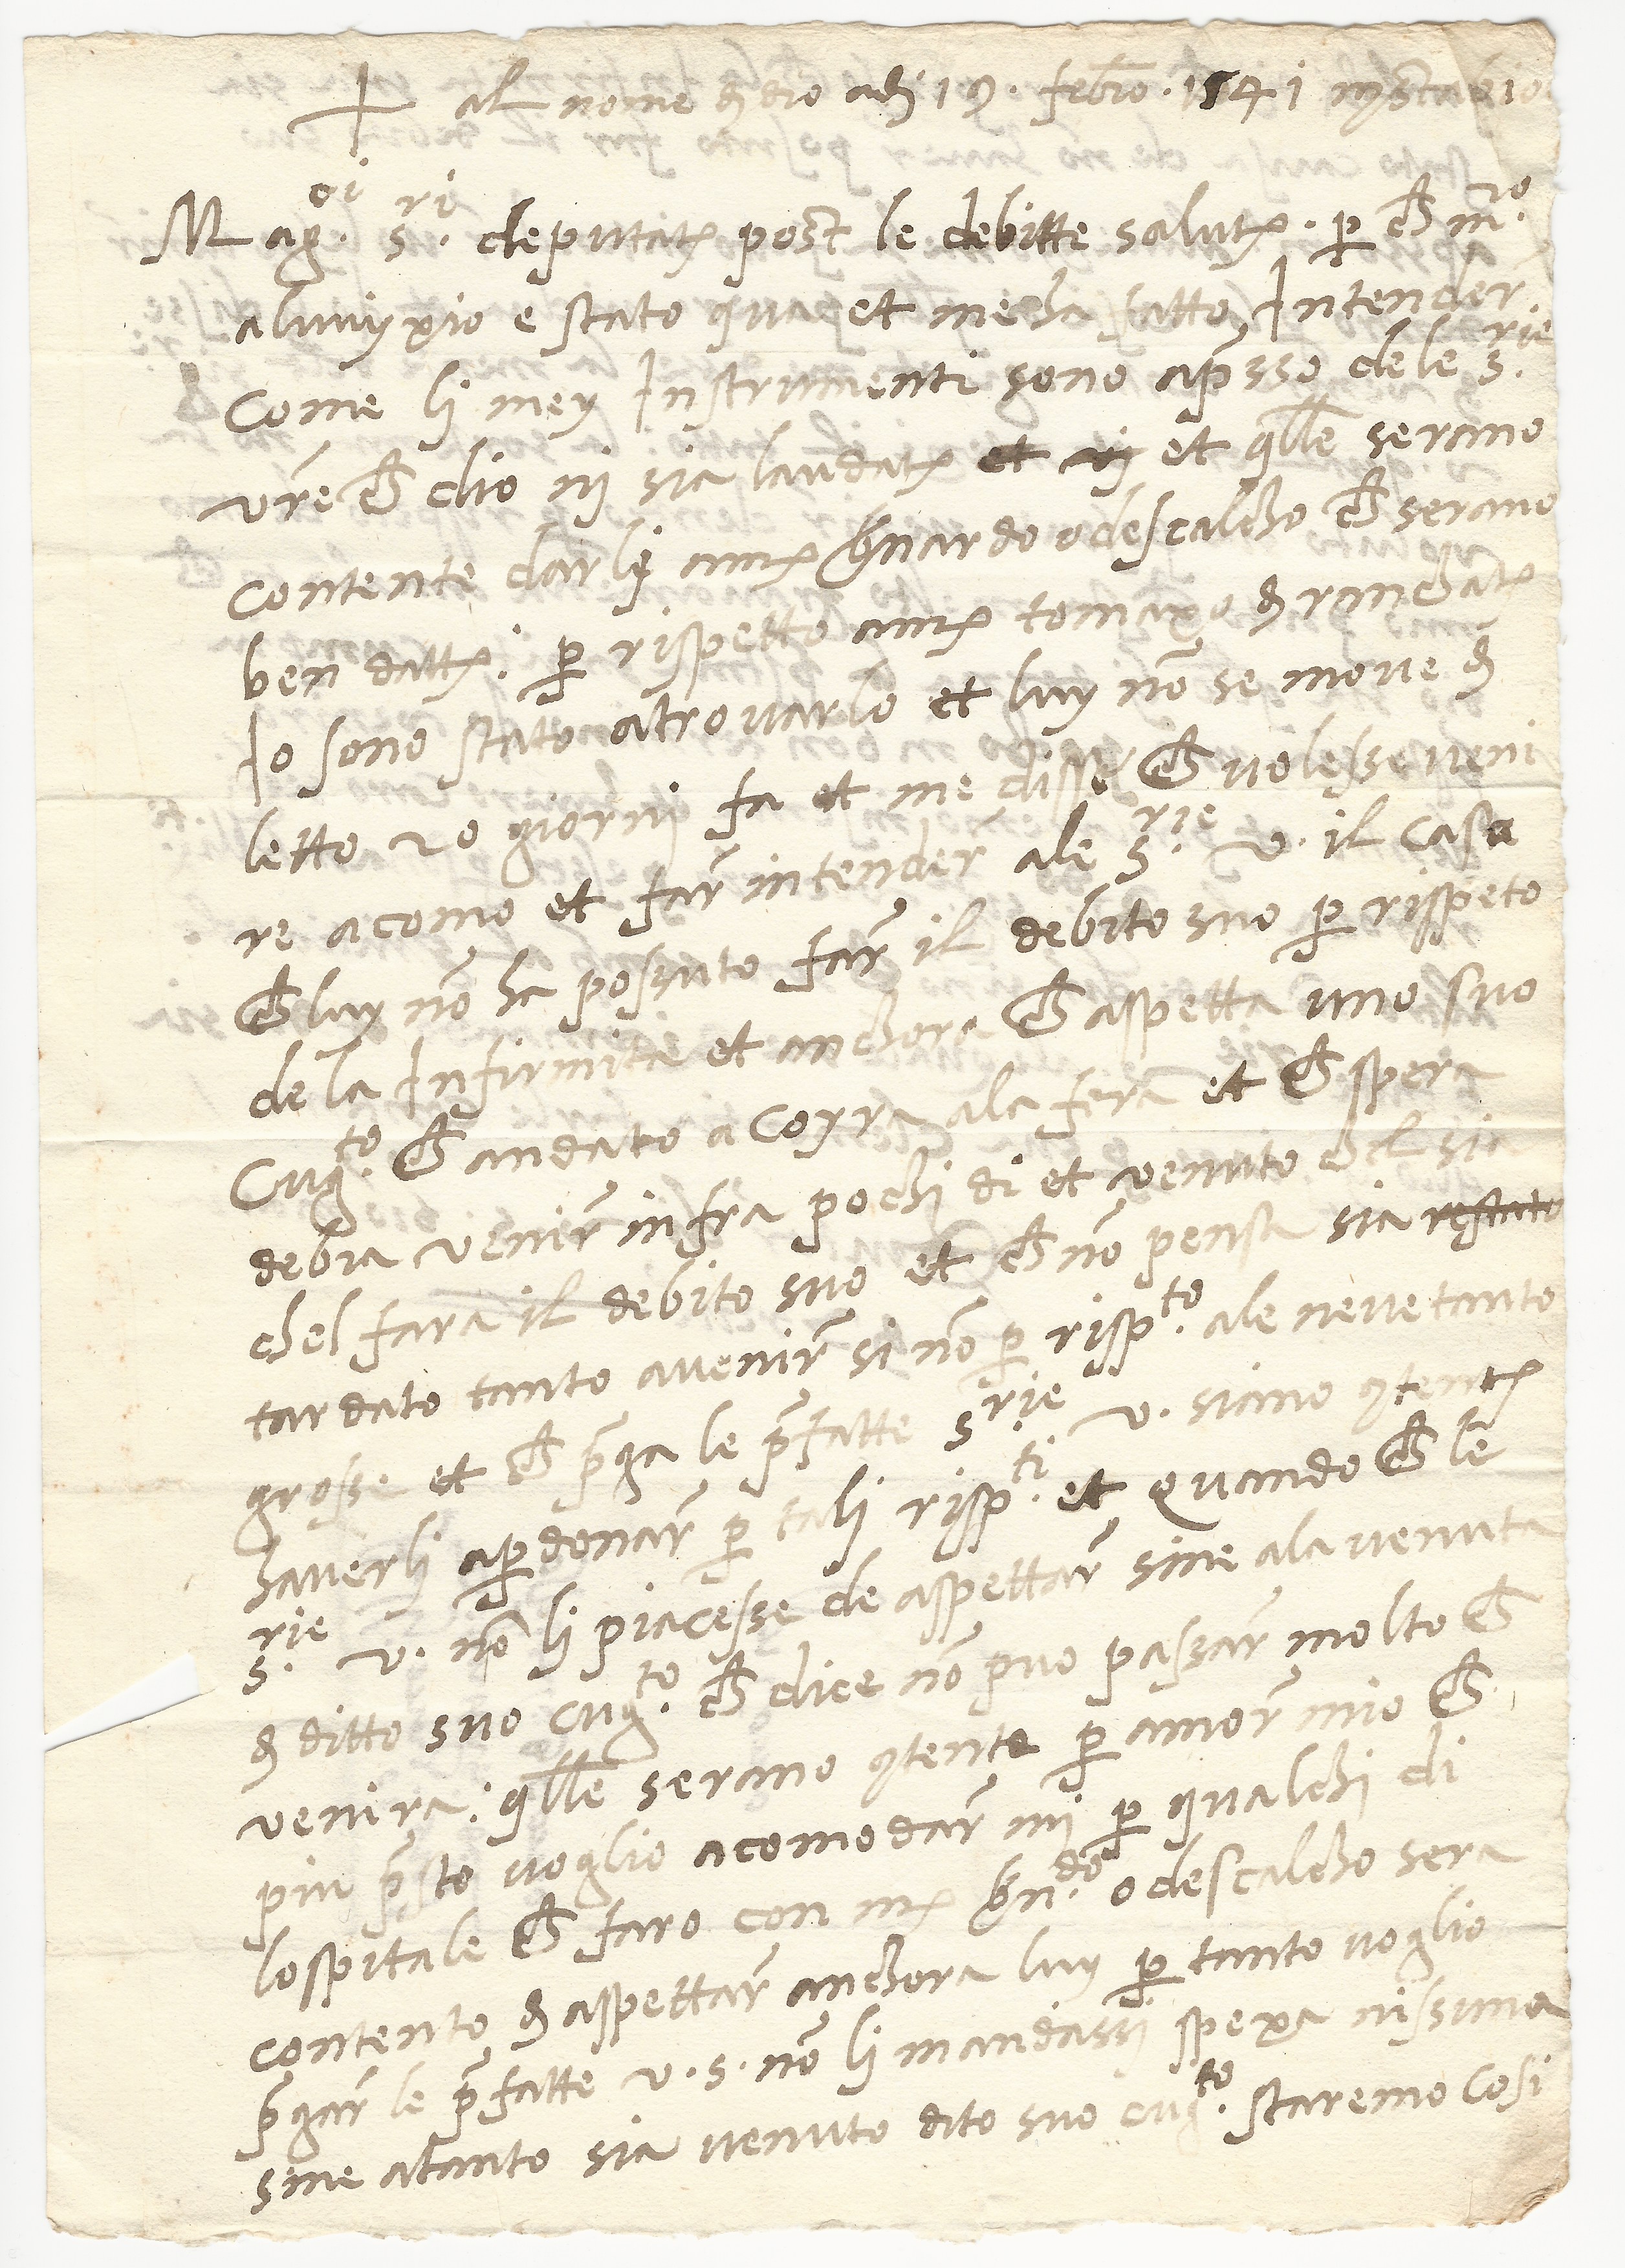 + al nome di dio adi 19. febro. 1541 in Stabio
Mag.ci s.ri deputati post le debitte salute. p che m.ro
aluuyxio e stato qua et me ha fatto Intender
Come li mey Instrumenti sono apsso dele s.rie
vre che dio ni sia laudato et et qlle serano
contente darli a mr bnardo odescalcho che serano
ben datti. p rispetto a mr tomaxo di
Io sono stato atrovarlo et luy no se move di
letto 20 giorni fa et me disse che volesse veni
re acomo et far intender ale s.rie v. il caso
che luy no ha possuto far il debito suo p rispeto
de la Infirmita et anchora che aspetta uno suo
Cug.to che andato a Coyra ala fera et che spera
debia venir infra pochi di et venuto chel sia
chel fara il debito suo et che no pensa sia restato
tardato tanto avenir si no p risp.to ale neve tanto
grosse et che pga le pfatte s.rie v. siano contente
haverli apdonar p tali risp.ti et quando che le
s.rie v. no li piacesse de aspettar sine ala venuta
di ditto suo cug.to che dice no puo passar molto che
venira: qlle serano contente p amor mio che
piu psto voglio acomodar mi p qualchi di
lospitale che faro con mr bn.do odescalcho sera
contento di aspettar anchora luy p tanto voglio
pgar le pfatte v. s. no li mandassi spexa nissuna
sine atanto sia venuto dito suo cug.to staremo Cosi